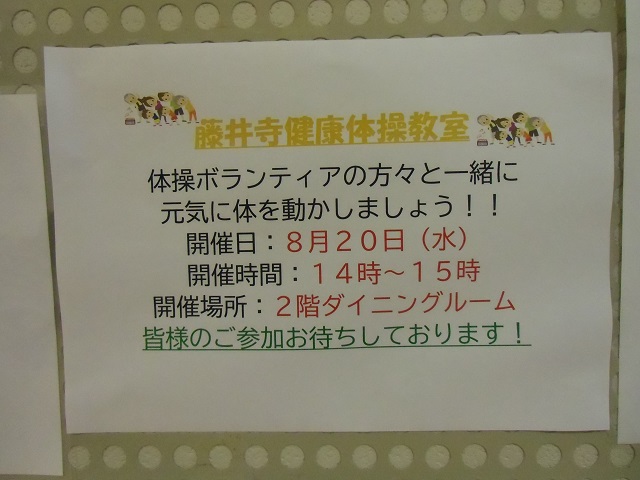 藤井寺健康体操教室
体操ボランティアの方々と一緒に
元気に体を動かしましょう！！
開催日：８月２０日（水）
開催時間：１４時～１５時
開催場所：２階ダイニングルーム
皆様のご参加お待ちしております！